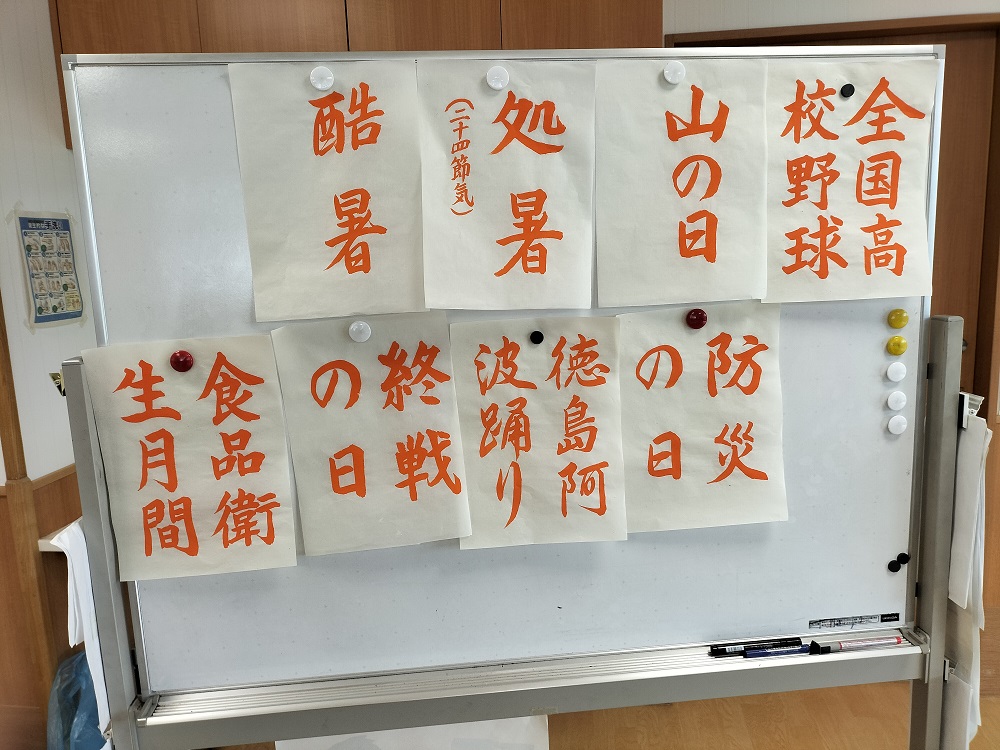 全国高
校野球
山の日
処暑
(二十四節気)
酷暑
防災
の日
徳島阿
波踊り
終戦
の日
食品衛
生月間